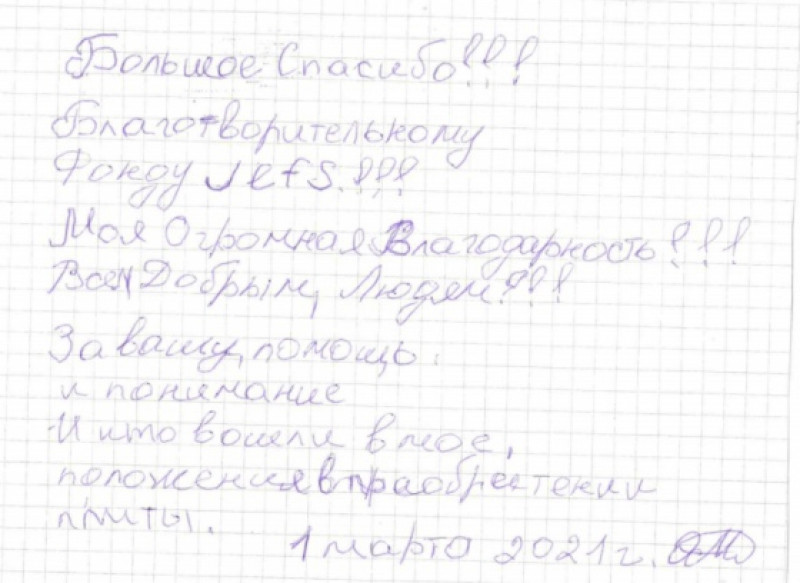 Большое Спасибо!!!
Благотворительному
Фонду Jefs.!!!
Моя Огромная Благодарность!!!
Всем Добрым, Людям!!!
За вашу, помощь.
и понимание
И что вошли в мое,
положения в праобретении
плиты.
1 марта 2021 г.